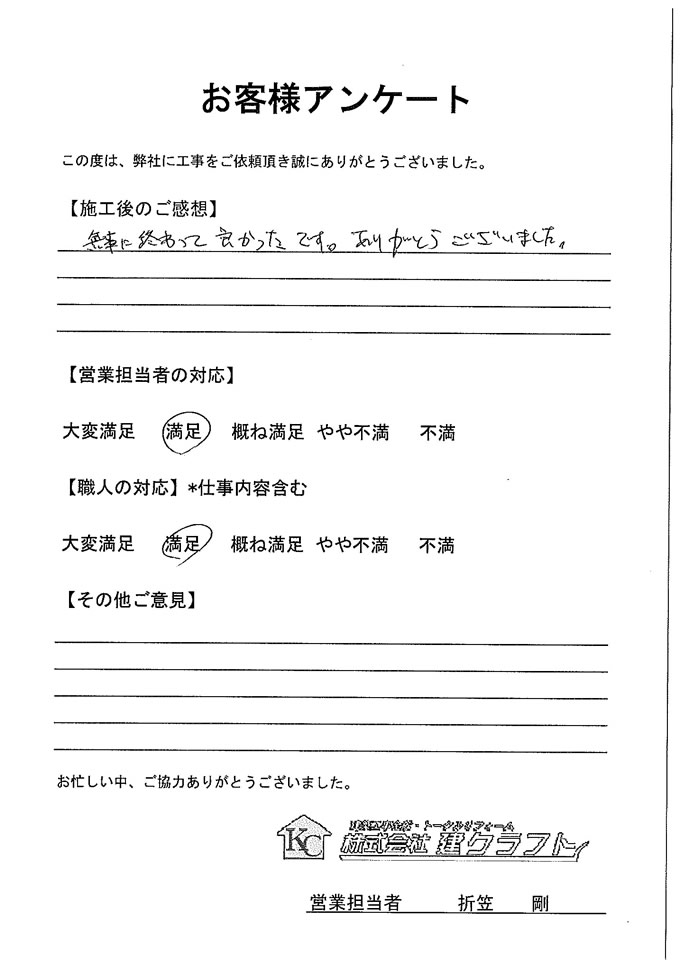 お客様アンケート
この度は、弊社に工事をご依頼頂き誠にありがとうございました。
【施工後のご感想】
無事に終わって良かったです。ありがとうございました。
【営業担当者の対応】
大変満足 満足 概ね満足 やや不満 不満
【職人の対応】*仕事内容含む
大変満足 満足 概ね満足 やや不満 不満
【その他ご意見】
お忙しい中、ご協力ありがとうございました。
KC
株式会社 建クラフト
営業担当者 折笠 剛